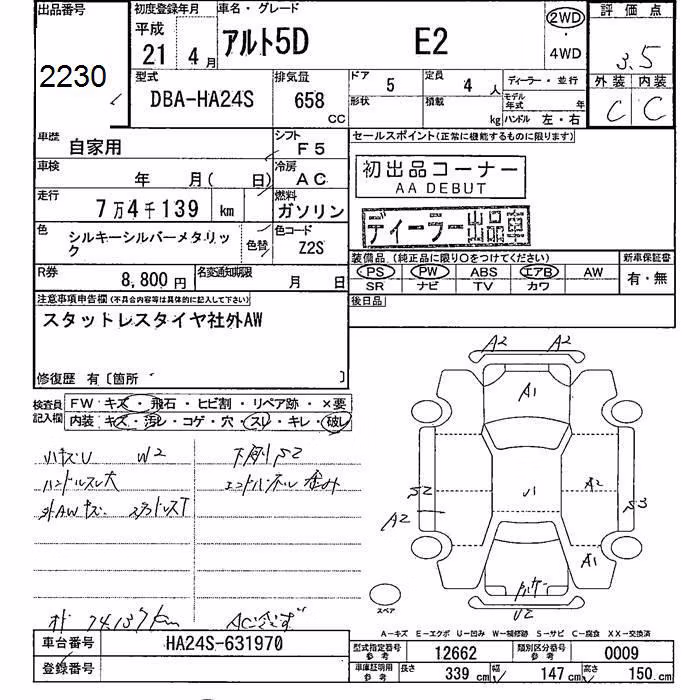 出品番号
2230
初度登録年月
平成
21 4月
車名・グレード
アルト5D E2
2WD
・
4WD
評価点
3.5
外装 内装
C C
型式
DBA-HA24S
排気量
658
CC
ドア 5
定員 4人
ディーラー・並行
形状
積載 kg
モデル年式 年
ハンドル 左・右
車歴 自家用
シフト F5
セールスポイント(正常に機能するものに限ります)
車検 年 月( 日)
冷房 AC
初出品コーナー
AA DEBUT
走行 7万4千139 km
燃料 ガソリン
ディーラー出品車
色 シルキーシルバーメタリック
色替
色コード Z2S
装備品(純正品に限り○をつけてください)
新車保証書
PS PW ABS エアB AW
SR ナビ TV カワ
有・無
R券 8,800円
名変通知期限 月 日
後日品
注意事項申告欄(不具合内容等は具体的に記入して下さい)
スタットレスタイヤ社外AW
修復歴 有〔箇所 〕
検査員記入欄
FW キズ・飛石・ヒビ割・リペア跡・×要
内装 キズ・汚レ・コゲ・穴・スレ・キレ・破レ
W2
下廻リS2
ハンドルスレ大
外AWキズ スタットレスT
74137km
A2 A2
A1
S2
A2
U1
A2
S3
A1
U2
スペア
A-キズ E-エクボ U-凹み W-補修跡 S-サビ C-腐食 XX-交換済
車台番号 HA24S-631970
登録番号
型式指定番号参考 12662
類別区分番号参考 0009
車庫証明用参考 長さ 339cm 幅 147cm 高さ 150cm